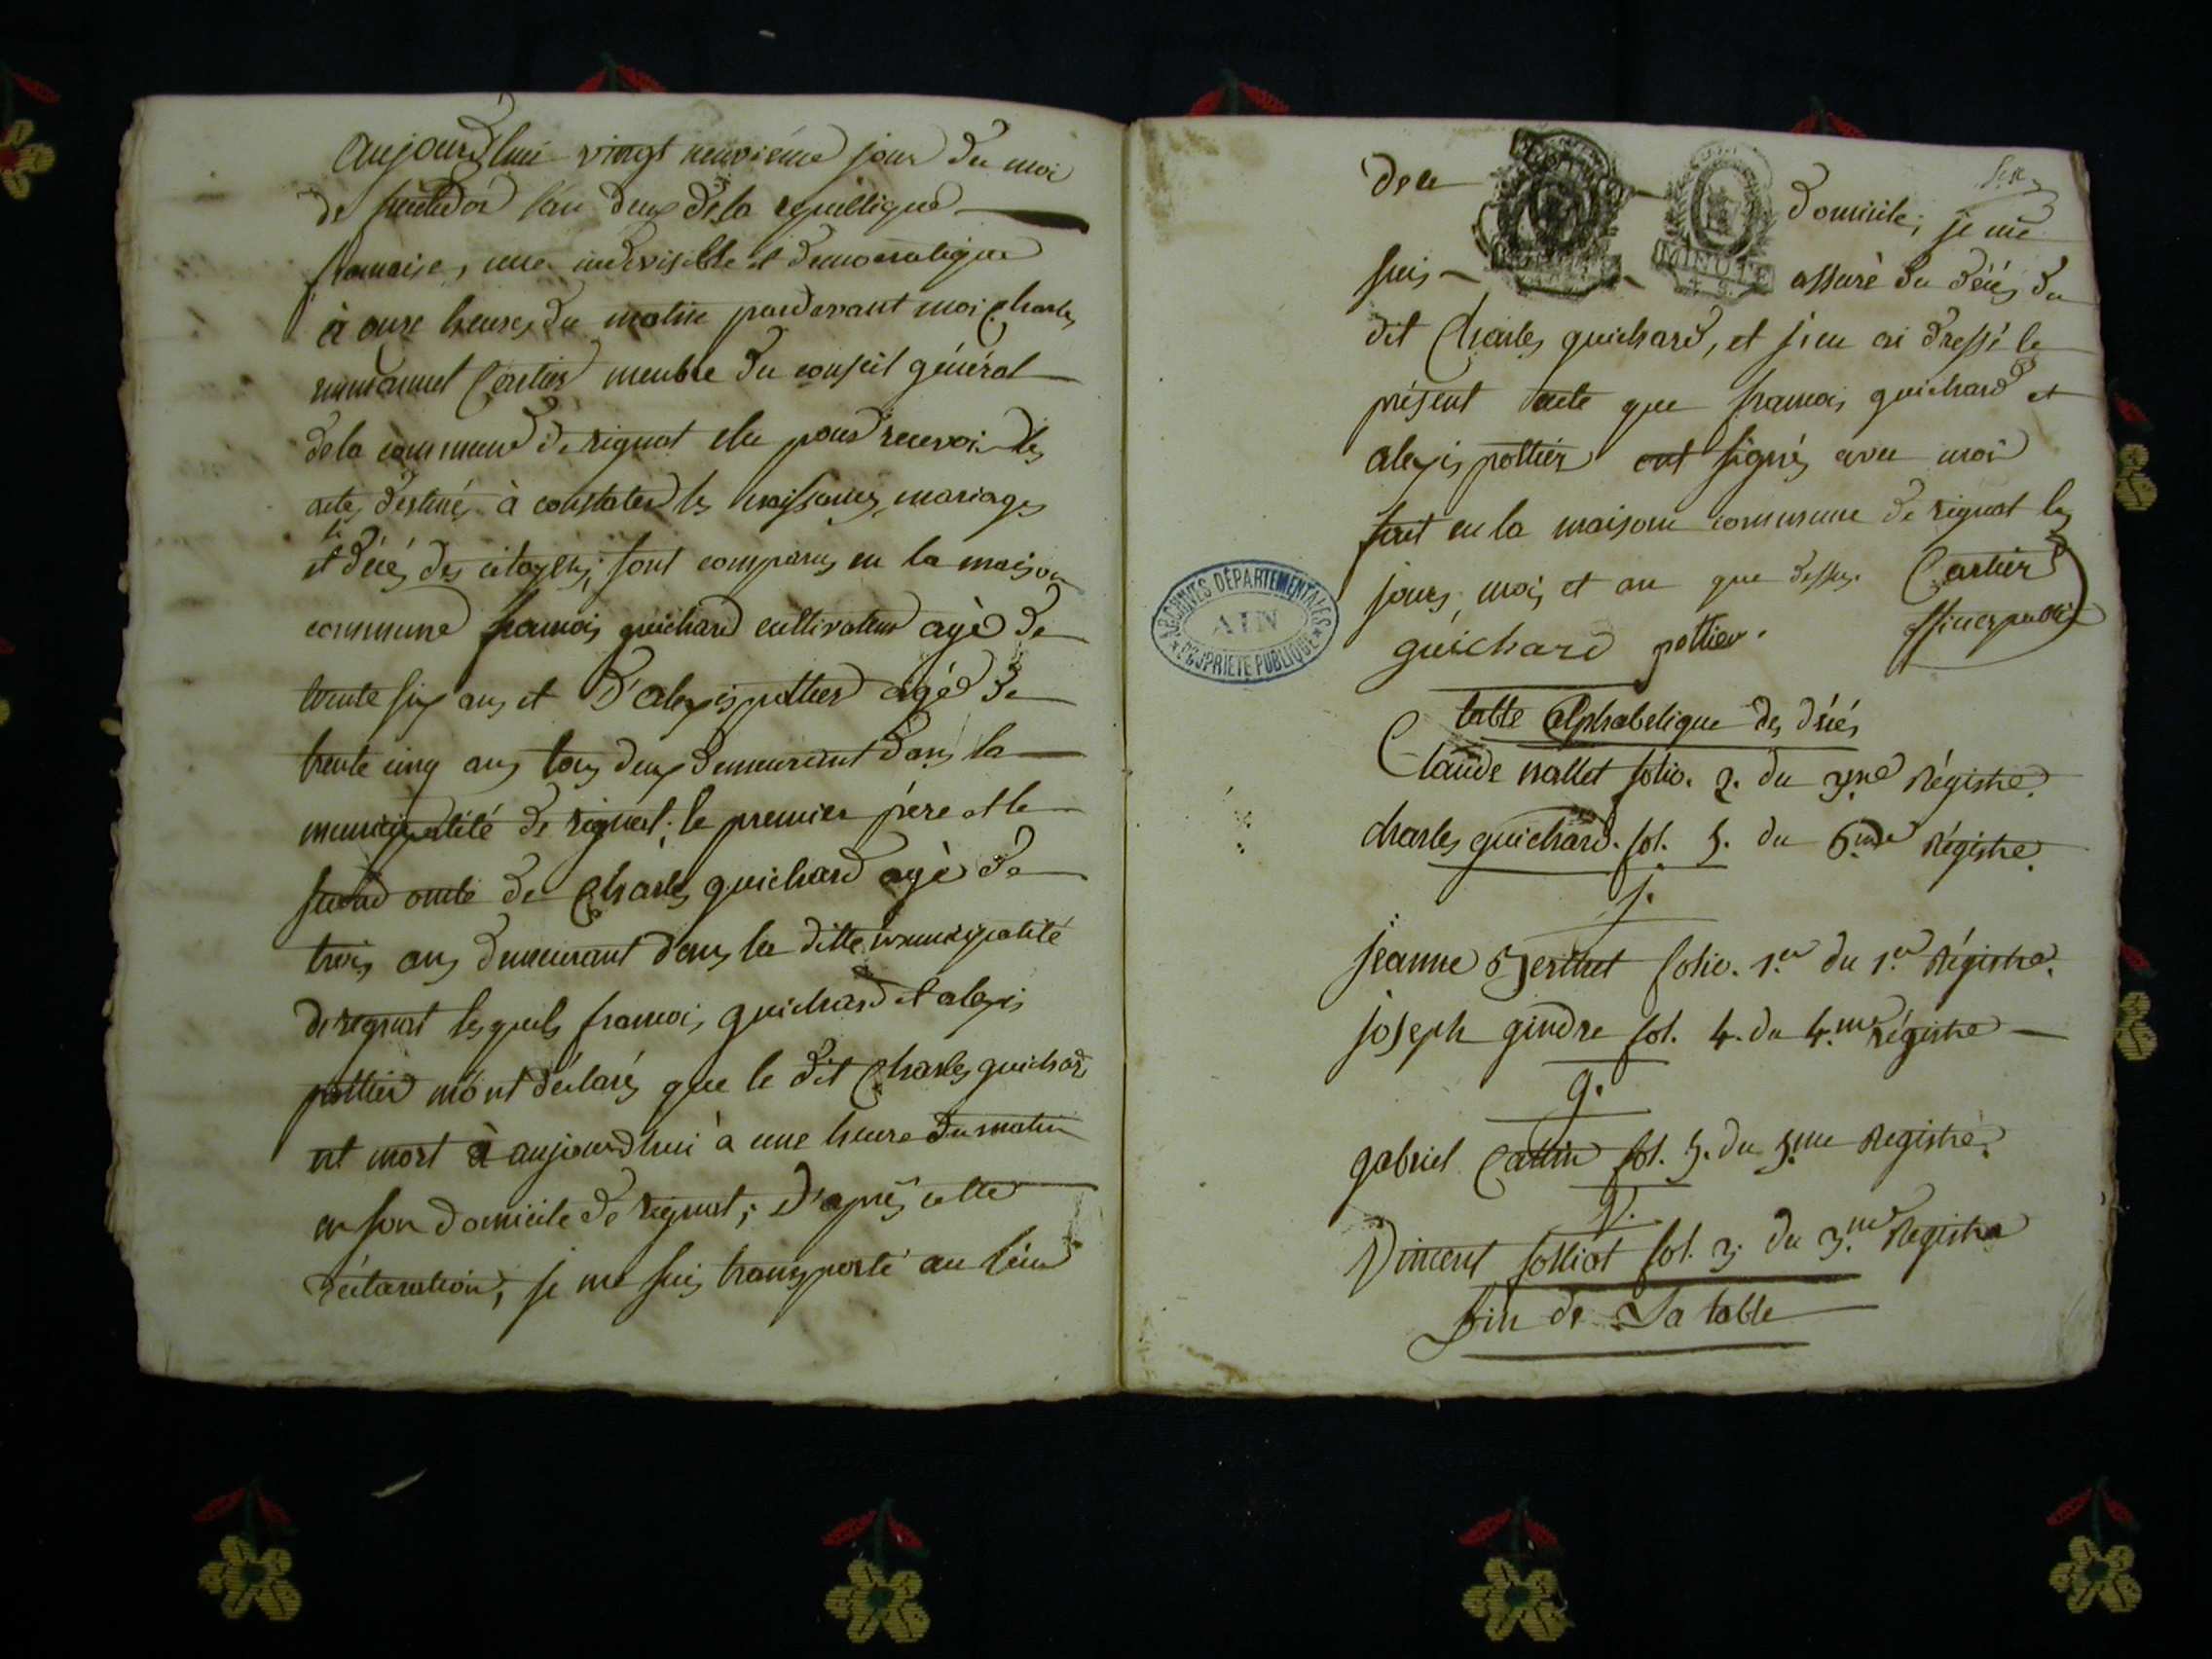 aujourd'hui vingt neuvieme jour du moi
de fructidor l'an deux de la republique
francaise, une indivisible et democratique
à onze heures du matin pardevant moi Charles
emmanuel Cartier membre du conseil général
de la commune de rignat elu pour recevoir les
actes destinés à constater les naissances, mariages
et décés des citoyens; sont comparus en la maison
commune francois guichard cultivateur agè de
trente six ans et d'alexis pottier agé de
trente cinq ans tous deux demeurant dans la
municipalité de rignat; le premier père et le
second oncle de Charles guichard agè de
trois ans demeurant dans la ditte municipalité
de rignat lesquels francois guichard et alexis
pottier m'ont déclarés que le dit Charles guichard
est mort à aujourdhui à une heure du matin
en son domicile de rignat; d'après cette
déclaration, je me suis transporté au lieu
de ce domicile; je me
suis assurè du décés du
dit Charles guichard, et j'en ai dressé le
présent acte que francois guichard et
alexis pottier ont signés avec moi
fait en la maison commune de rignat les
jours, mois et an que dessus. Cartier
guichard pottier. officier public
MINUTE
ARCHIVES DÉPARTEMENTALES
AIN
PROPRIÉTÉ PUBLIQUE
table alphabetique des décés
Claude nallet folio. 2. du 2me Régistre.
charles guichard. fol. 5. du 6me Régistre.
j.
jeanne folio. 1.er du 1.er Régistre.
joseph gindre fol. 4. du 4.me régistre
g.
gabriel Cattin fol. 5. du 5.me Registre.
V.
Vincent folliat fol. 3. du 3.me Registre
fin de La table